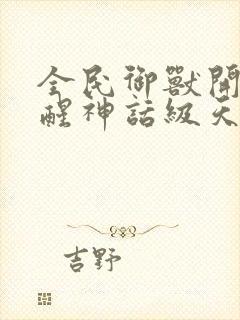 全民御獸開
醒神話級天
吉野